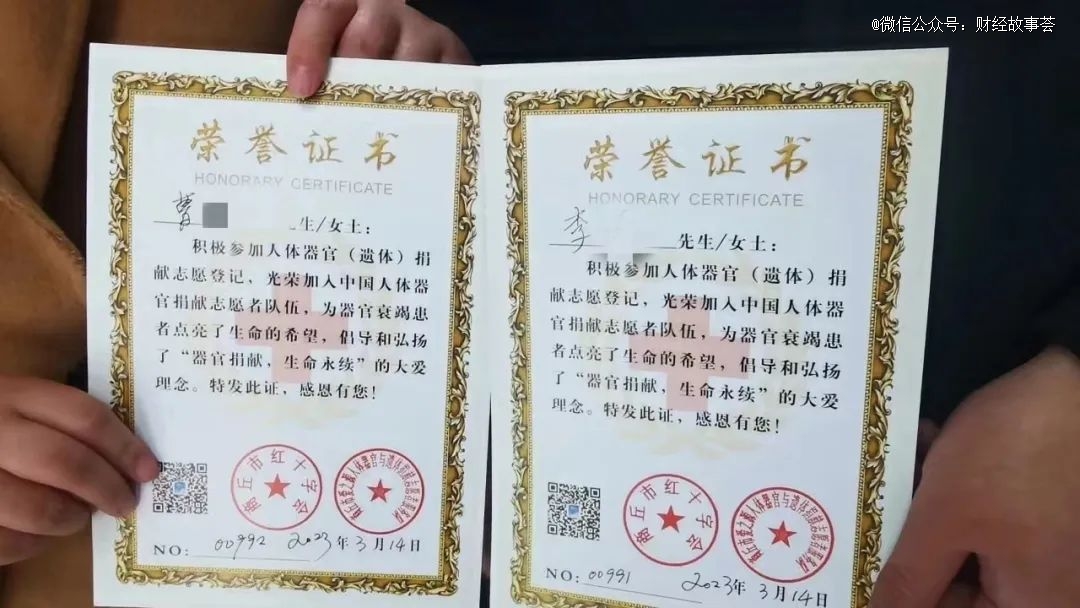 @微信公众号：财经故事荟
荣誉证书
HONORARY CERTIFICATE
曹
生/女士：
积极参加人体器官（遗体）捐
献志愿登记，光荣加入中国人体器
官捐献志愿者队伍，为器官衰竭患
者点亮了生命的希望，倡导和弘扬
了“器官捐献，生命永续”的大爱
理念。特发此证，感恩有您！
商丘市红十字会
NO：00992 2023年3月14日
荣誉证书
HONORARY CERTIFICATE
李 先生/女士：
积极参加人体器官（遗体）捐
献志愿登记，光荣加入中国人体器
官捐献志愿者队伍，为器官衰竭患
者点亮了生命的希望，倡导和弘扬
了“器官捐献，生命永续”的大爱
理念。特发此证，感恩有您！
商丘市红十字会
NO：00991 2023年3月14日